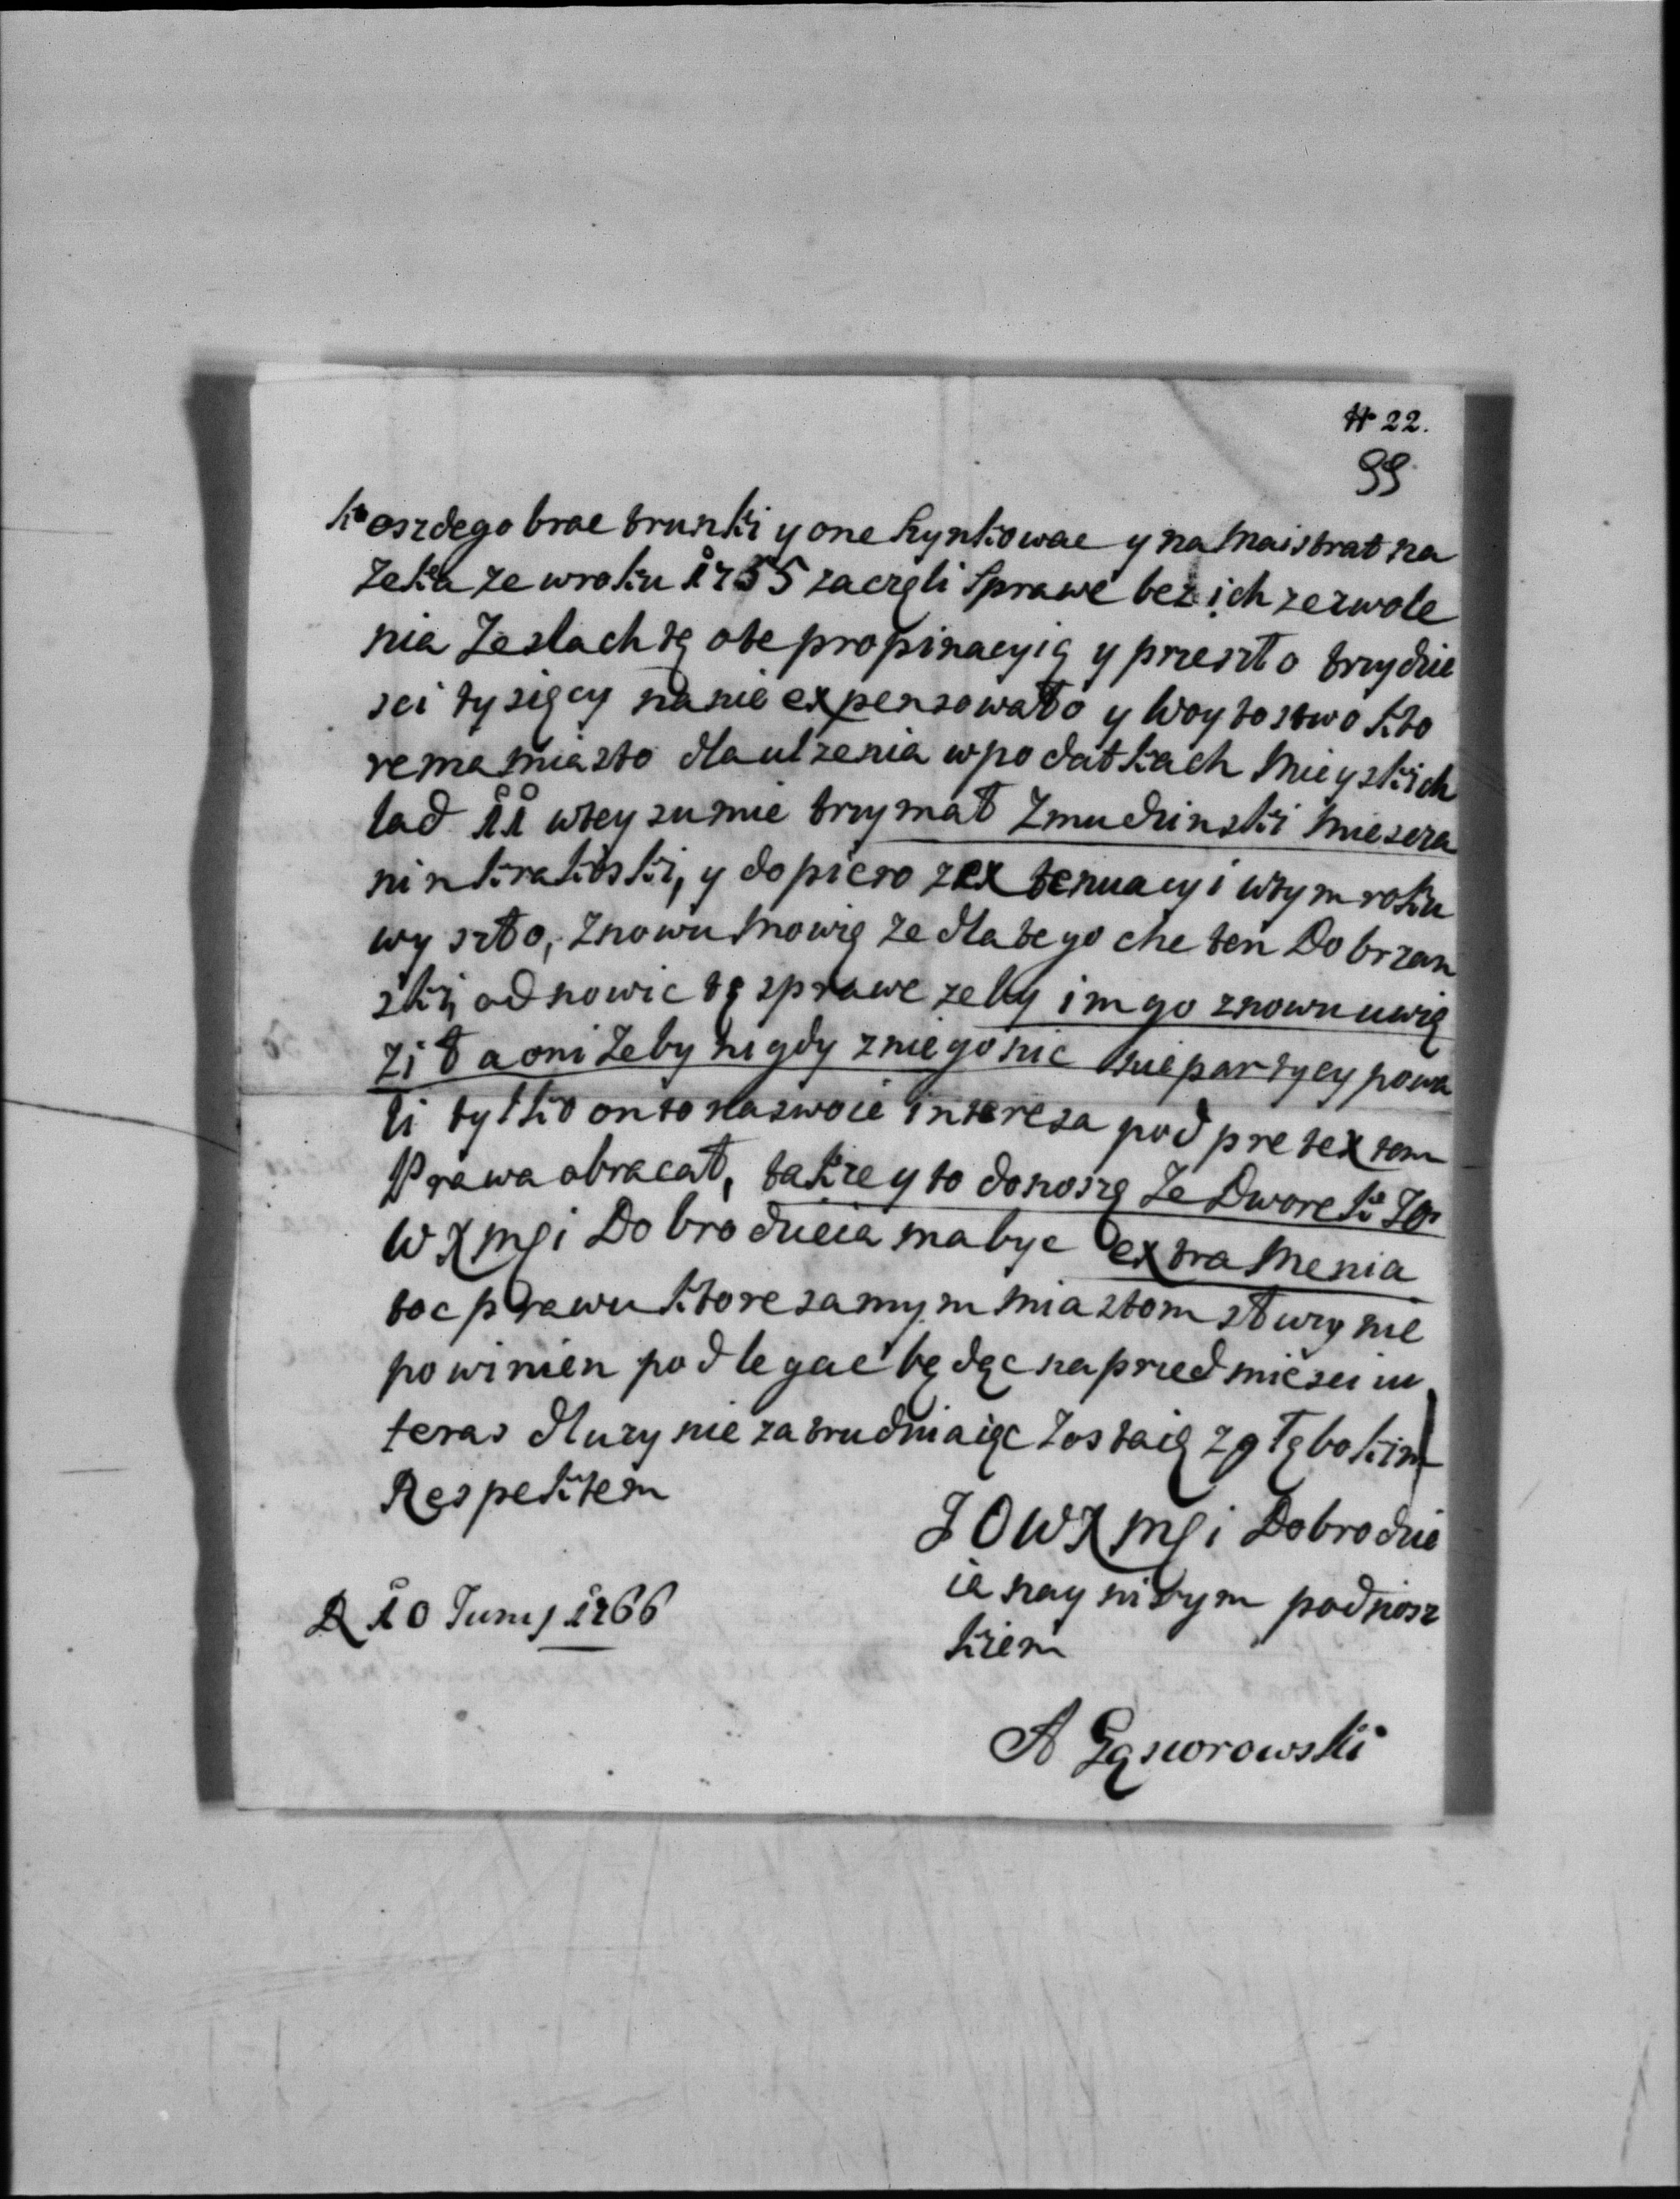 N 22.
99
koszdego brac trunki y one szynkowac y na Maistrat na
rzeka ze w roku 1755 zaczęli Sprawe bez ich zezwole
nia ze slachtą o te propinacyią y przeszło trzydzie
sci tysięcy na nie expensowało y Woytostwo kto
re ma miasto dla ulzenia w podatkach Mieyskich
lad 11 w tey sumie trzymał Zmudzinski Miescza
nin krakoski, y dopiero z extenuacyi w tym roku
wyszło, znowu Mowią ze dla tego chc ten Dobrzan
ski odnowic tę sprawe zeby im go znowu uwią
ził a oni zeby nigdy z niego nic nie partycypowa
li tylko on to na swoie interesa pod pretextem
Prawa obracał, takze y to donoszę ze Dworek JO
WX Mſi Dobrodzieia ma byc extra Menia
toc prawu ktore samym miastom słuzy nie
powinien podlegac będąc na przedmiesciu
teras dłuzy nie zatrudniaiąc zostaię z głębokim
Respektem
JOWX Mſi Dobrodzie
ia nayniszym podnosz
kiem
D 10 Junij 1766
A Gąsiorowski